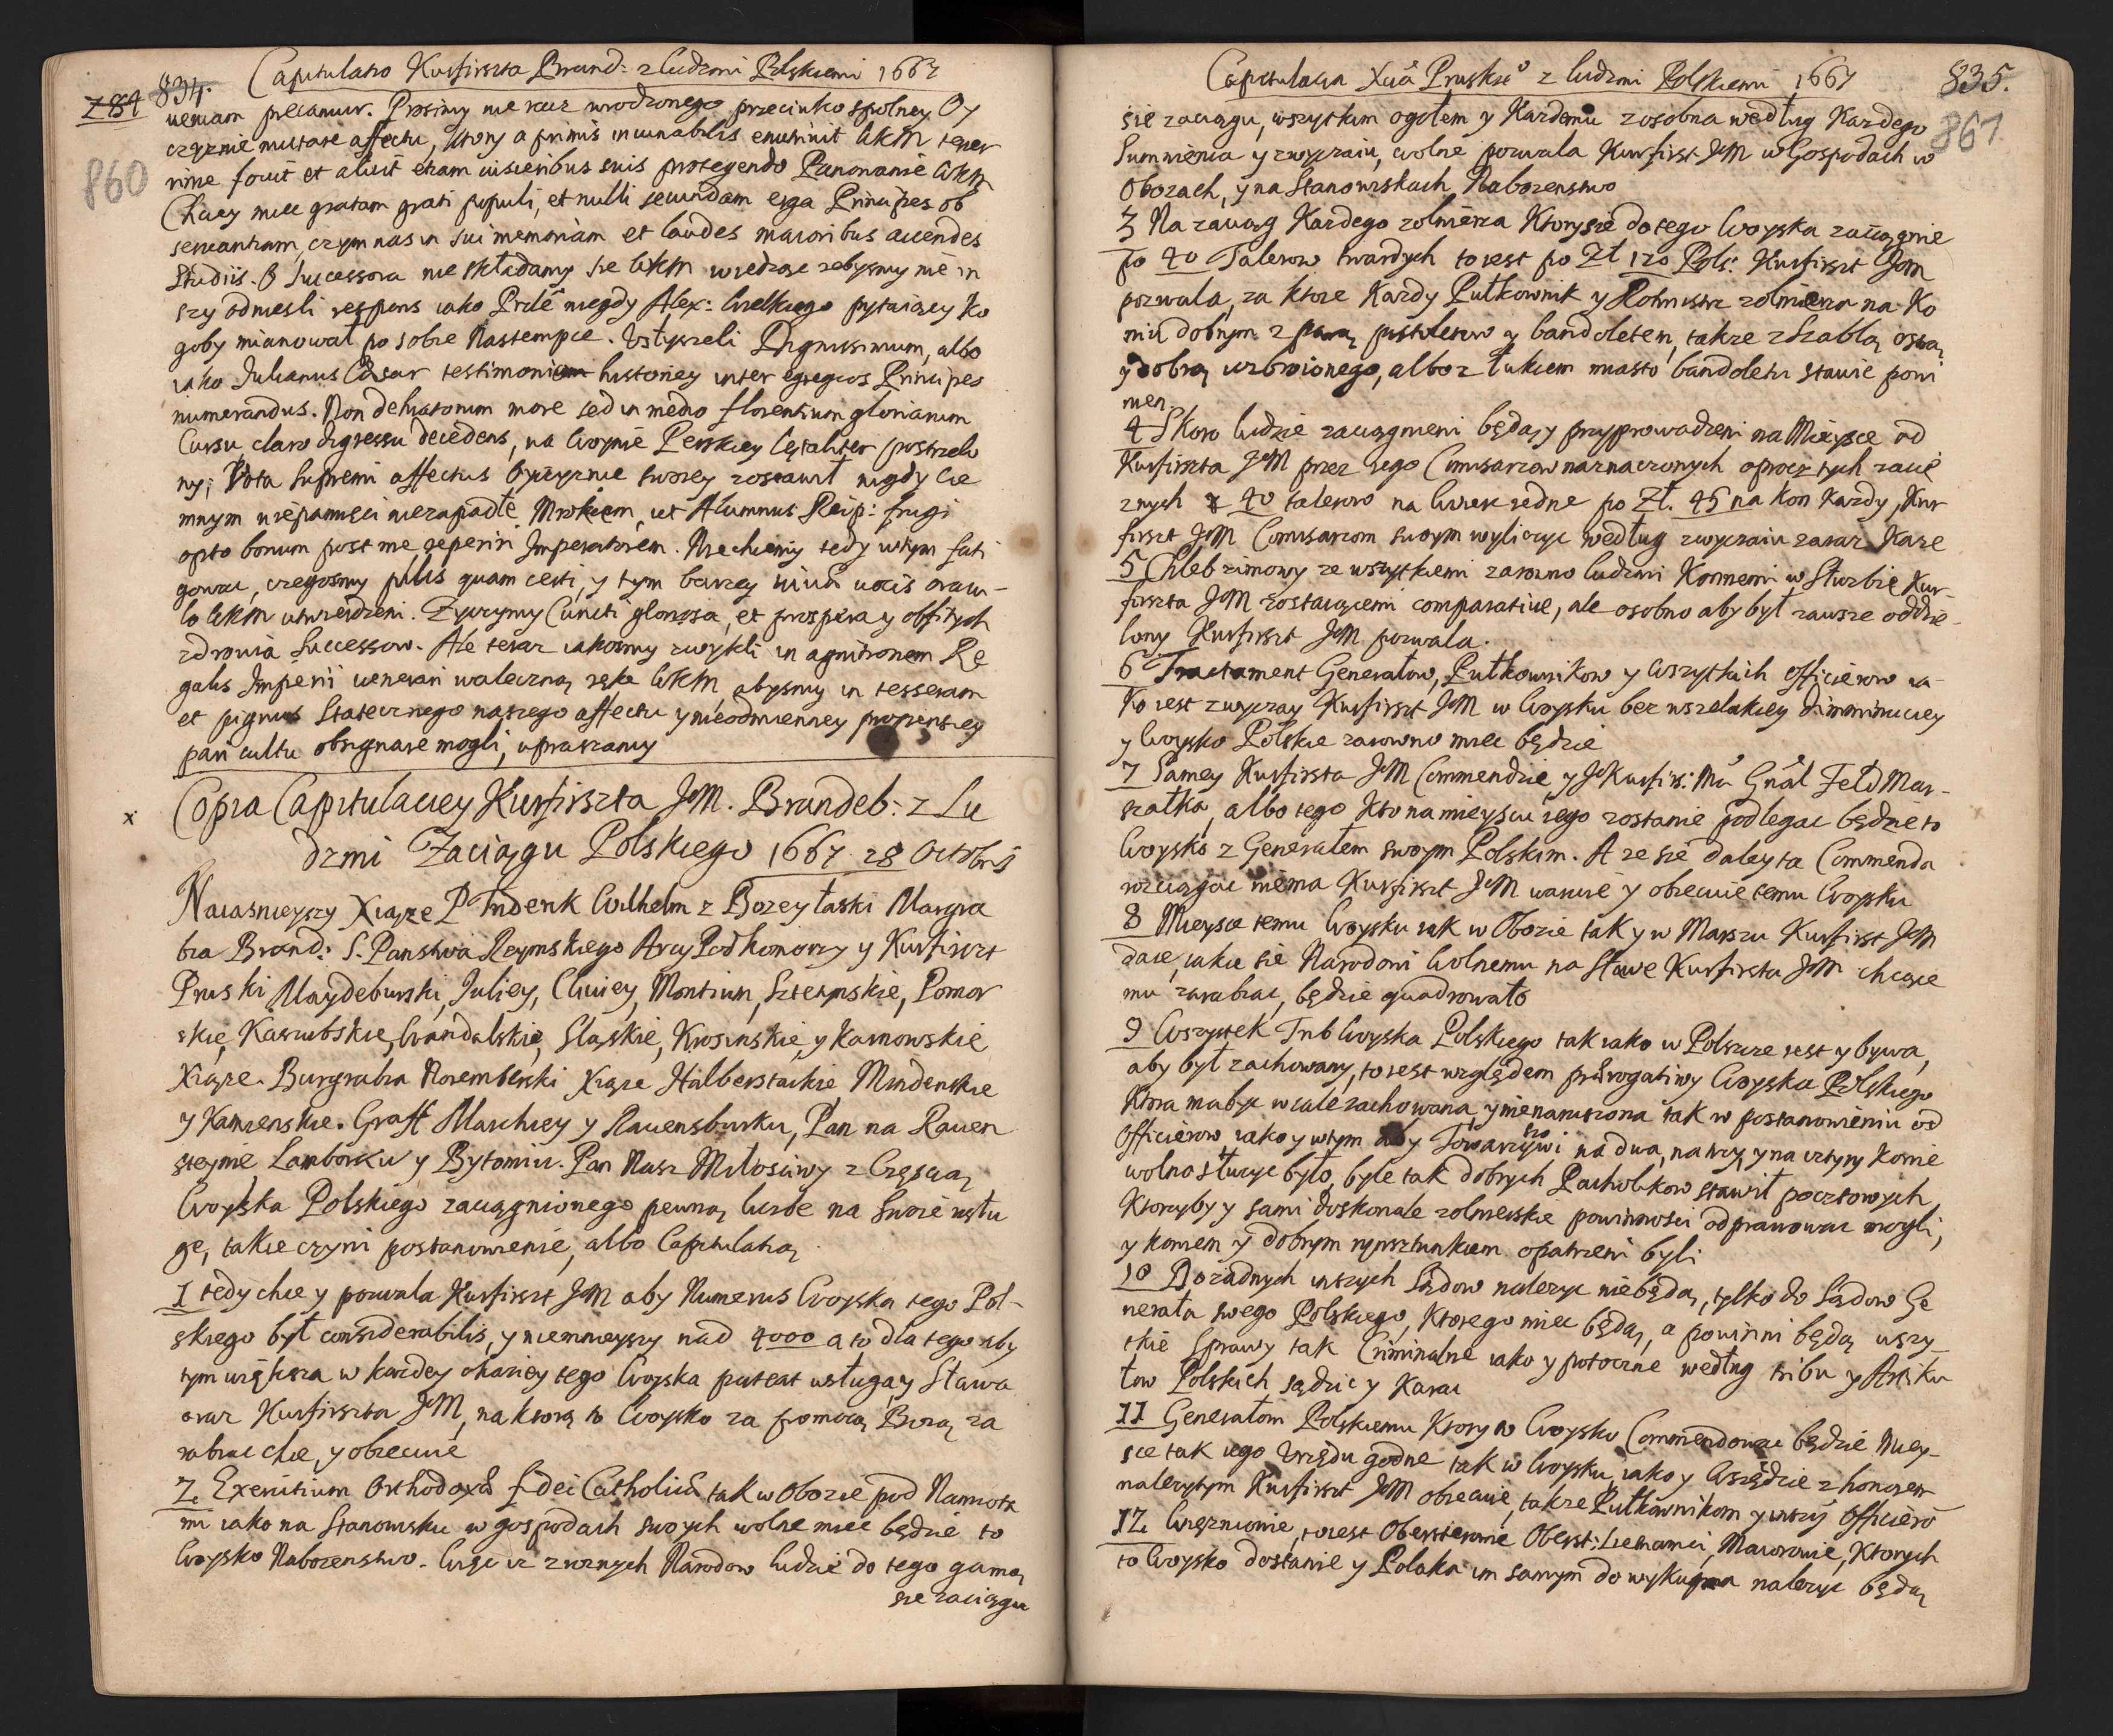 834. Capitulatio Kurfirszta Brand: z ludzmi Polskiemi 1667
784
860
veniam precamur. Prosimy nie racz wrodzonego przeciwko spolney Oy
czyznie mutare affectu, ktory a primis incunabilis enutrivit WKM tener
rime fovit et aluit etiam visceribus suis protegendo Panowanie WKM
Chciey miec gratam grati populi, et nulli secundam erga Principes ob
servantiam, czym nas in sui memoriam et laudes maioribus accendes
Studiis. O Successora nie składamy sie WKM w redzose zebysmy nie in
szy odniesli respons iako Przłe niegdy Alex: Wielkiego pytaiący ko
goby mianował po sobie Nastempce. Usłyszeli Dignissimum, albo
iako Julianus Cæsar testimonium historiey inter egregios Principes
numerandus. Non deliratorum more sed in medio florentium gloriarum
Cursu, claro digressu decedens, na Woynie Perskiey lętaliter postrzelo
ny; Vota Supremi affectus Oyczyznie swoiey zostawił nigdy Cie
mnym niepamięci niezapadłe Mrokiem, ut Alumnus Reip: frugi
opto bonum post me reperiri Imperatorem. Niechciemy tedy w tym fati
gować, czegosmy plus quam certi, y tym barziey viva vocis oracu-
lo WKM utwierdzeni. Zyczymy Cuncti gloriosa, et prospera y obfitych
zdrowia Successow. Ale teraz iakosmy zwykli in agnitionem Re
galis Imperii venerari waleczną rękę WKM, abysmy in tesseram
et pignus Statecznego naszego affectu y nieodmienney propensiey
pari cultu obsignare mogli, upraszamy
x Copia Capitulaciey Kurfirszta JeM. Brandeb: z Lu
dzmi Zaciągu Polskiego 1667 28 Octobris
Naiasnieyszy Xiąze P Friderik Wilhelm z Bozey łaski Margra
bia Brand: S. Panstwa Rzymskiego Arcy Podkomorzy y Kurfirszt
Pruski Maydeburski, Juliey, Cliviey, Montium, Szteţynskie, Pomor
skie, Kaszubskie, Wandalskie, Sląskie, Krosinskie, y Karnowskie
Xiąze. Burgrabia Noremberski Xiąze Halberstackie Mindenskie
y Kamienskie. Graff Marchiey y Ravensburku, Pan na Raven
steynie Lamborku y Bytomiu. Pan Nasz Miłosciwy z Częscią
Woyska Polskiego zaciągnionego pewną liczbe na Swoie usłu
gę, takie czyni postanowienie, albo Capitulatią
1 tedy chce y pozwala Kurfirszt JeM aby Numerus Woyska tego Pol-
skiego był considerabilis, y niemnieyszy nad 4000 a to dla tego aby
tym większa w kazdey okaziey tego Woyska pateat usługa, y Sława
oraz Kurfirszta JeM, na ktorą to Woysko za pomocą Bozą za
rabiac chce, y obiecuie
2. Exercitium Orthodoxæ fidei Catholicæ tak w Obozie pod Namiota
mi iako na Stanowisku w gospodach swoych wolne miec będzie to
Woysko Nabozenstwo. Więc iz z roznych Narodow ludzie do tego garną
sie zaciągu
Capitulacia Xcia Pruskio z ludzmi Polskiemi 1667 835.
867
się zaciągu, wszytkim ogołem y Kazdemu zosobna według Kazdego
Sumnienia y zwyczaiu, wolne pozwala Kurfirszt JeM w Gospodach w
Obozach, y na Stanowiskach Nabozenstwo
3 Na zaciąg Kazdego zołnierza Ktory sie do tego Woyska zaciągnie
po 40 Talerow twardych to iest po Zł 120 Pols: Kurfirszt JeM
pozwala, za ktore Kazdy Pułkownik y Rotmistrz zołnierza na Ko
niu dobrym z parą pistoletow y bandoletem, takze z szablą ostrą
y dobrą uzbroionego, albo z łukiem miasto bandoletu stawic powi
nien.
4 Skoro ludzie zaciągnieni będą y przyprowadzeni na Mieysce od
Kurfirszta JeM przez iego Comisarzow naznaczonych oprocz tych zacię
znych 40 talerow na Cwierc iedne po Zł. 45 na kon Kazdy, Kur
firszt JeM Comisarzom swoym wyliczyc według zwyczaiu zaraz Kaze
5 Chleb zimowy ze wszytkiemi zarowno ludzmi Konnemi w Słuzbie Kur-
firszta JeM zostaiącemi comparative, ale osobno aby był zawsze oddzie-
lony Kurfirszt JeM pozwala.
6 Tractament Generałow, Pułkownikow y wszytkich officierow ia-
ko iest zwyczay Kurfirszt JeM w Woysku bez wszelakiey diminuciey
y Woysko Polskie zarowno miec będzie
7 Samey Kurfirszta JeM Commendzie y JeKurfirs: Mci Gnał Feld Mar-
szałka, albo tego kto na mieyscu iego zostanie podlegac będzie to
Woysko z Generałem swoym Polskim. A ze sie daley ta Commenda
rozciągac niema Kurfirszt JeM waruie y obiecuie temu Woysku
8 Mieysce temu Woysku iak w Obozie tak y w Marszu Kurfirszt JeM
daie, iakie sie Narodowi Wolnemu na Sławe Kurfirszta JeM chcące
mu zarabiac, będzie quadrowało
9 Wszystek Trib Woyska Polskiego tak iako w Polszcze iest y bywa,
aby był zachowany, to iest względem prærogatiwy Woyska Polskiego
Ktora ma byc w cale zachowana y nienaruszona tak w postanowieniu od
Officierow iako y w tym aby Towarzyszowi na dwa, na trzy, y na cztyry konie
wolno słuzyc było, byle tak dobrych Pacholikow stawił pocztowych
Ktorzyby y sami doskonale zolnierskie powinnosci odprawowac mogli,
y koniem y dobrym rynsztunkiem opatrzeni byli
10 Do zadnych inszych Sądow nalezyc niebędą, tylko do Sądow Ge
nerała swego Polskiego, Ktorego miec będą, a powinni będą wszy-
tkie Sprawy tak Criminalne iako y potoczne według tribu y Artiku
łow Polskich sądzic y karac
11 Generałowi Polskiemu Ktory to Woysko Commendowac będzie Miey-
sce tak iego Urzędu godne tak w Woysku, iako y wszędzie z honorem
nalezytym Kurfirszt JeM obiecuie, takze Pułkownikom y inszy Officierō
12. Więzniowie, to iest Oberszterowie Oberst: Lietnanci, Maiorowie, Ktorych
to Woysko dostanie y Polaka im samym do wykupna nalezyc będą